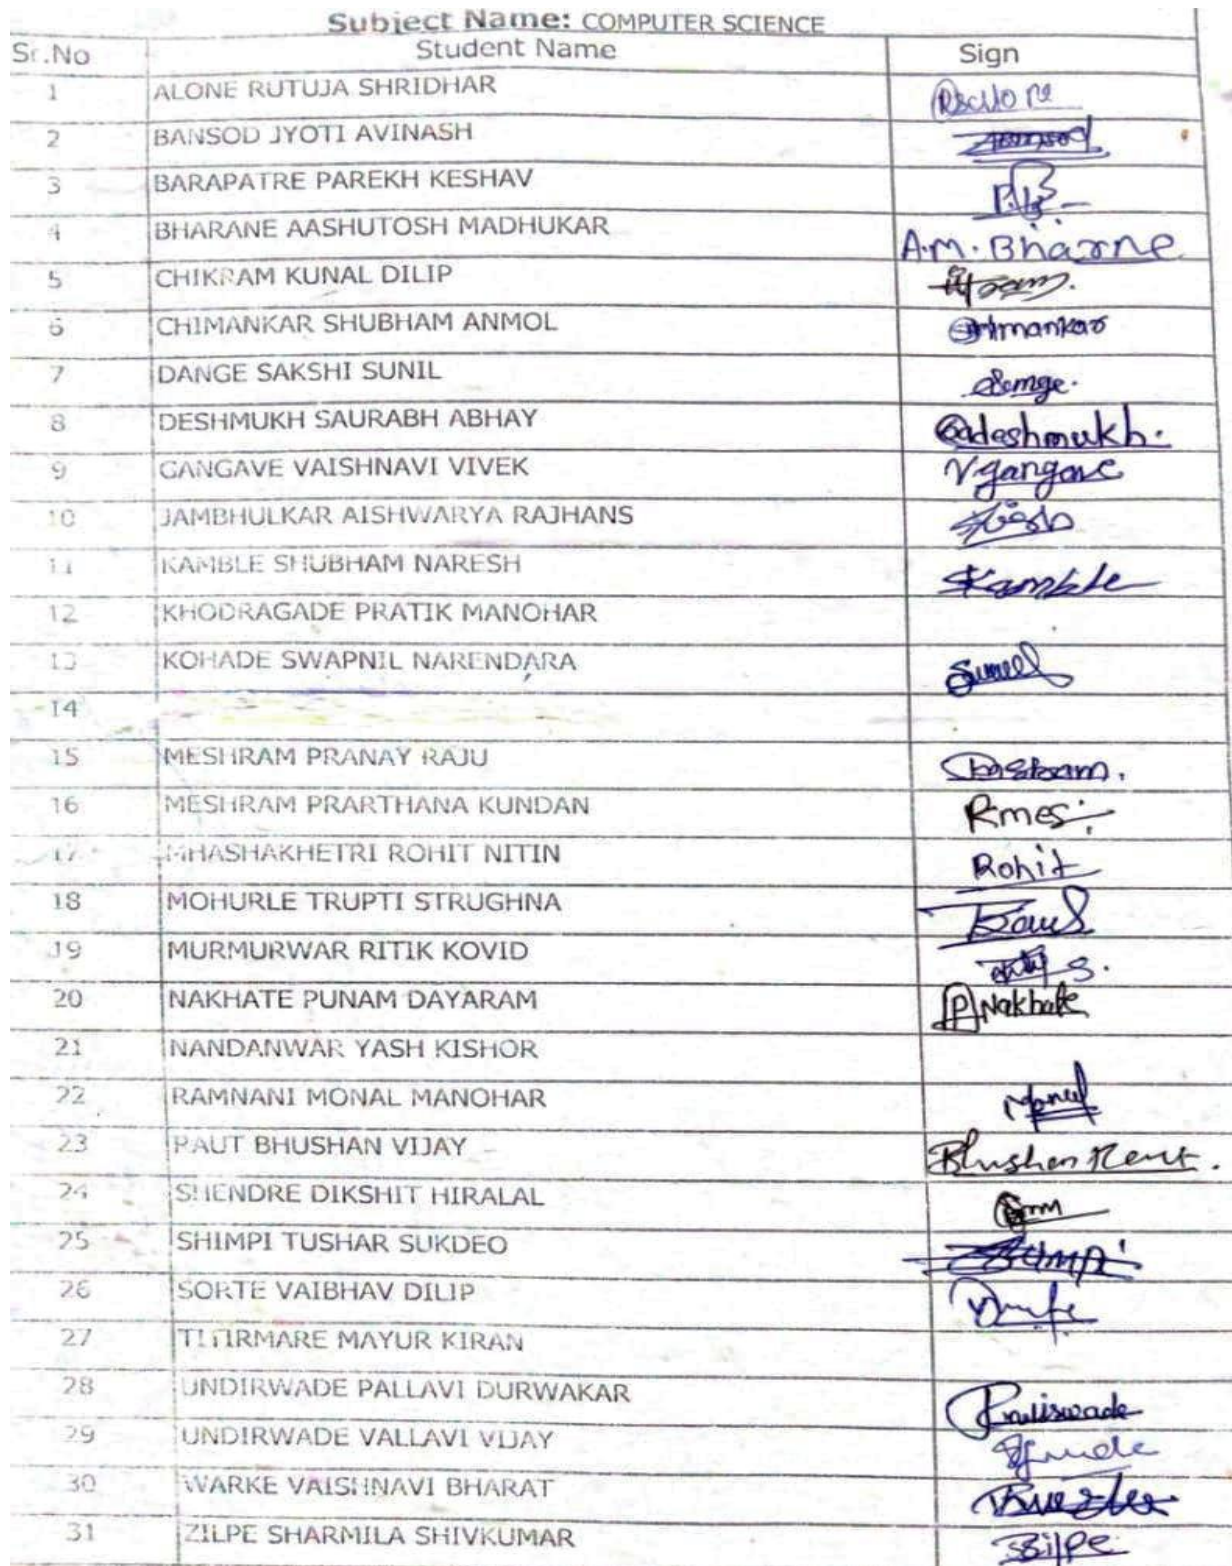 Subject Name: COMPUTER SCIENCE
Sr.No Student Name Sign
1 ALONE RUTUJA SHRIDHAR
2 BANSOD JYOTI AVINASH
3 BARAPATRE PAREKH KESHAV
4 BHARANE AASHUTOSH MADHUKAR A.M.Bharne
5 CHIKRAM KUNAL DILIP
6 CHIMANKAR SHUBHAM ANMOL
7 DANGE SAKSHI SUNIL
8 DESHMUKH SAURABH ABHAY deshmukh.
9 GANGAVE VAISHNAVI VIVEK Vgangave
10 JAMBHULKAR AISHWARYA RAJHANS
11 KAMBLE SHUBHAM NARESH SKamble
12 KHODRAGADE PRATIK MANOHAR
13 KOHADE SWAPNIL NARENDARA
14
15 MESHRAM PRANAY RAJU
16 MESHRAM PRARTHANA KUNDAN Pmes
17 MHASHAKHETRI ROHIT NITIN Rohit
18 MOHURLE TRUPTI STRUGHNA
19 MURMURWAR RITIK KOVID
20 NAKHATE PUNAM DAYARAM P Nakhate
21 NANDANWAR YASH KISHOR
22 RAMNANI MONAL MANOHAR Monal
23 RAUT BHUSHAN VIJAY Bhushan Raut.
24 SHENDRE DIKSHIT HIRALAL
25 SHIMPI TUSHAR SUKDEO
26 SORTE VAIBHAV DILIP
27 TITIRMARE MAYUR KIRAN
28 UNDIRWADE PALLAVI DURWAKAR
29 UNDIRWADE VALLAVI VIJAY
30 WARKE VAISHNAVI BHARAT
31 ZILPE SHARMILA SHIVKUMAR Zilpe